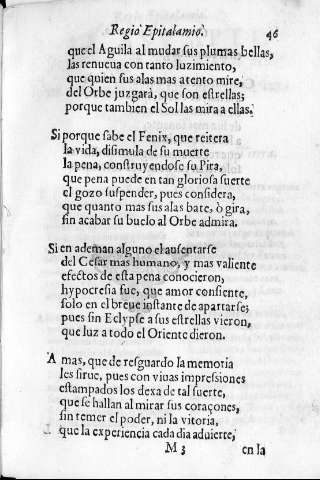 Regio Epitalamio. 46
que el Aguila al mudar sus plumas bellas,
las renueua con tanto luzimiento,
que quien sus alas mas atento mire,
del Orbe juzgarà, que son estrellas;
porque tambien el Sol las mira a ellas.
Si porque sabe el Fenix, que reitera
la vida, disimula de su muerte
la pena, construyendose su Pira,
que pena puede en tan gloriosa suerte
el gozo suspender, pues considera,
que quanto mas sus alas bate, ò gira,
sin acabar su buelo al Orbe admira.
Si en ademan alguno el ausentarse
del Cesar mas humano, y mas valiente
efectos de esta pena conocieron,
hypocresia fue, que amor consiente,
solo en el breue instante de apartarse;
pues sin Eclypse a sus estrellas vieron,
que luz a todo el Oriente dieron.
A mas, que de resguardo la memoria
les sirue, pues con viuas impressiones
estampados los dexa de tal suerte,
que se hallan al mirar sus coraçones,
sin temer el poder, ni la vitoria,
que la experiencia cada dia aduierte,
M 3 en la